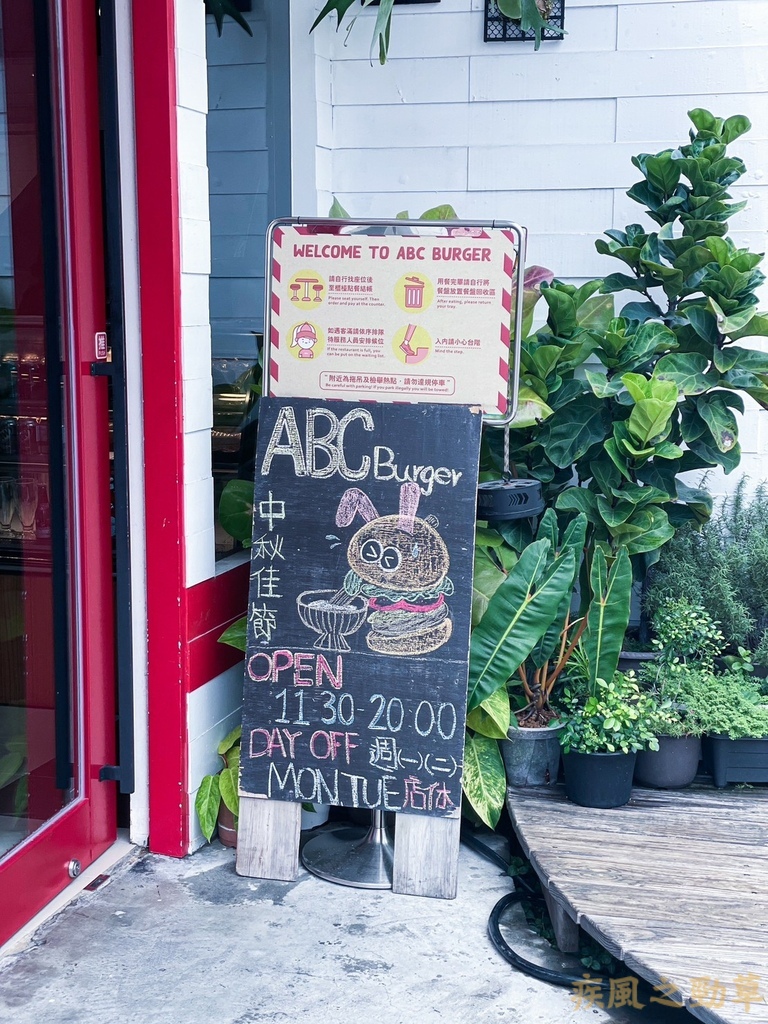 WELCOME TO ABC BURGER
請自行找座位後
至櫃檯點餐結帳
Please seat yourself. Then
order and pay at the counter.
用餐完畢請自行將
餐盤放置餐盤回收區
After eating, please return
your tray.
如遇客滿請依序排隊
待服務人員安排餐位
If the restaurant is full, you
can be put on the waiting list.
入內請小心台階
Mind the step.
附近為拖吊及檢舉熱點,請勿違規停車
Be careful with parking! If you park illegally you will be towed!
ABC Burger
中秋佳節
OPEN
11:30-20:00
DAY OFF 週(一)(二)
MON TUE 店休
疾風之勁草